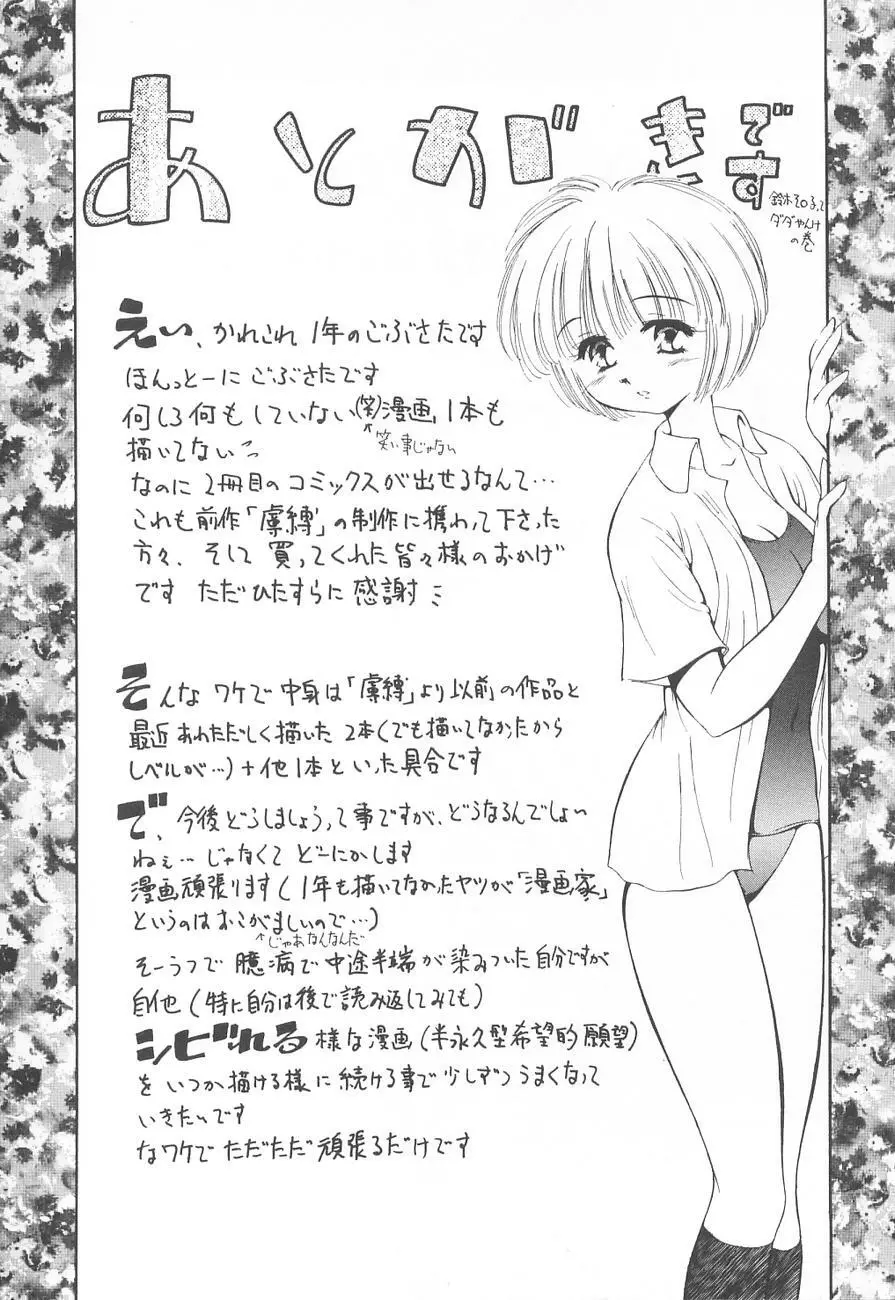 あとがきです
鈴木そのるって
ダダやんけ
の巻
えい、かれこれ1年のごぶさたです
ほんっとーにごぶさたです
何しろ何もしていない(笑)漫画1本も
笑い事じゃない
描いてないっ
なのに2冊目のコミックスが出せるなんて…
これも前作「虜縛」の制作に携わって下さった
方々、そして買ってくれた皆々様のおかげ
です ただひたすらに感謝
そんなワケで中身は「虜縛」より以前の作品と
最近あわただしく描いた2本(でも描いてなかったから
レベルが…)+他1本といった具合です
で、今後どうしましょうって事ですが、どうなるんでしょい
ねぇ…じゃなくてどーにかします
漫画頑張ります(1年も描いてなかったヤツが「漫画家」
というのはおこがましいので…)
じゃあなんなんだ
そーうつで臆病で中途半端が染みついた自分ですが
自他(特に自分は後で読み返してみても)
シビれる様な漫画(半永久型希望的願望)
をいつか描ける様に続ける事で少しずつうまくなって
いきたいです
なワケでただただ頑張るだけです